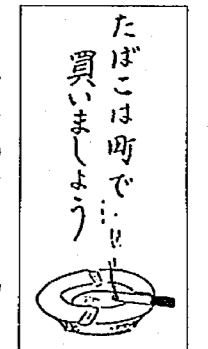 たばこは町で…!!
買いましょう